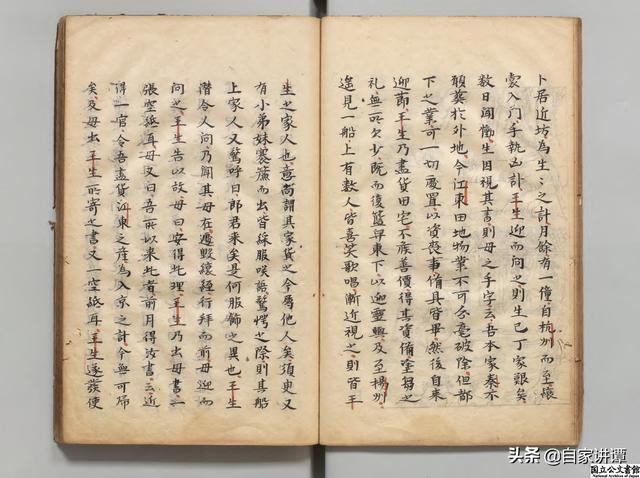 卜居近坊為生〻之計月餘有一僮自杭州而至縗
裳入門手執凶計王生迎而問之則生已丁家艱矣
数日聞慟生因視其書則母之手字云吾本家秦不
願葬於外地今江東田地物業不可分毫破除但都
下之業可一切處置以資喪事備具皆畢然後自来
迎節王生乃盡貨田宅不候善價得其資備塗芻之
礼無所欠少既而復籃舁東下以迎靈輿及至楊州
遥見一船上有数人皆喜笑歌唱漸近視之則皆王
生之家人也意尚謂其家貨之今属他人矣須臾又
有小弟妹搴簾而出皆綵服咲語驚愕之際則其船
上家人又驚呼曰郎君来矣是何服飾之異也王生
潛令人問乃聞其母在遽毀縗絰行拜而前母迎而
問之王生告以故母曰安得此理王生乃出母書一
張空紙耳母又曰吾所以来此者前月得汝書云近
得一官令吾盡貨江東之産為入京之計今無可歸
矣及母出王生所寄之書又一空紙耳王生遂發使
头条 @自家讲谭
国立公文書館
National Archives of Japan